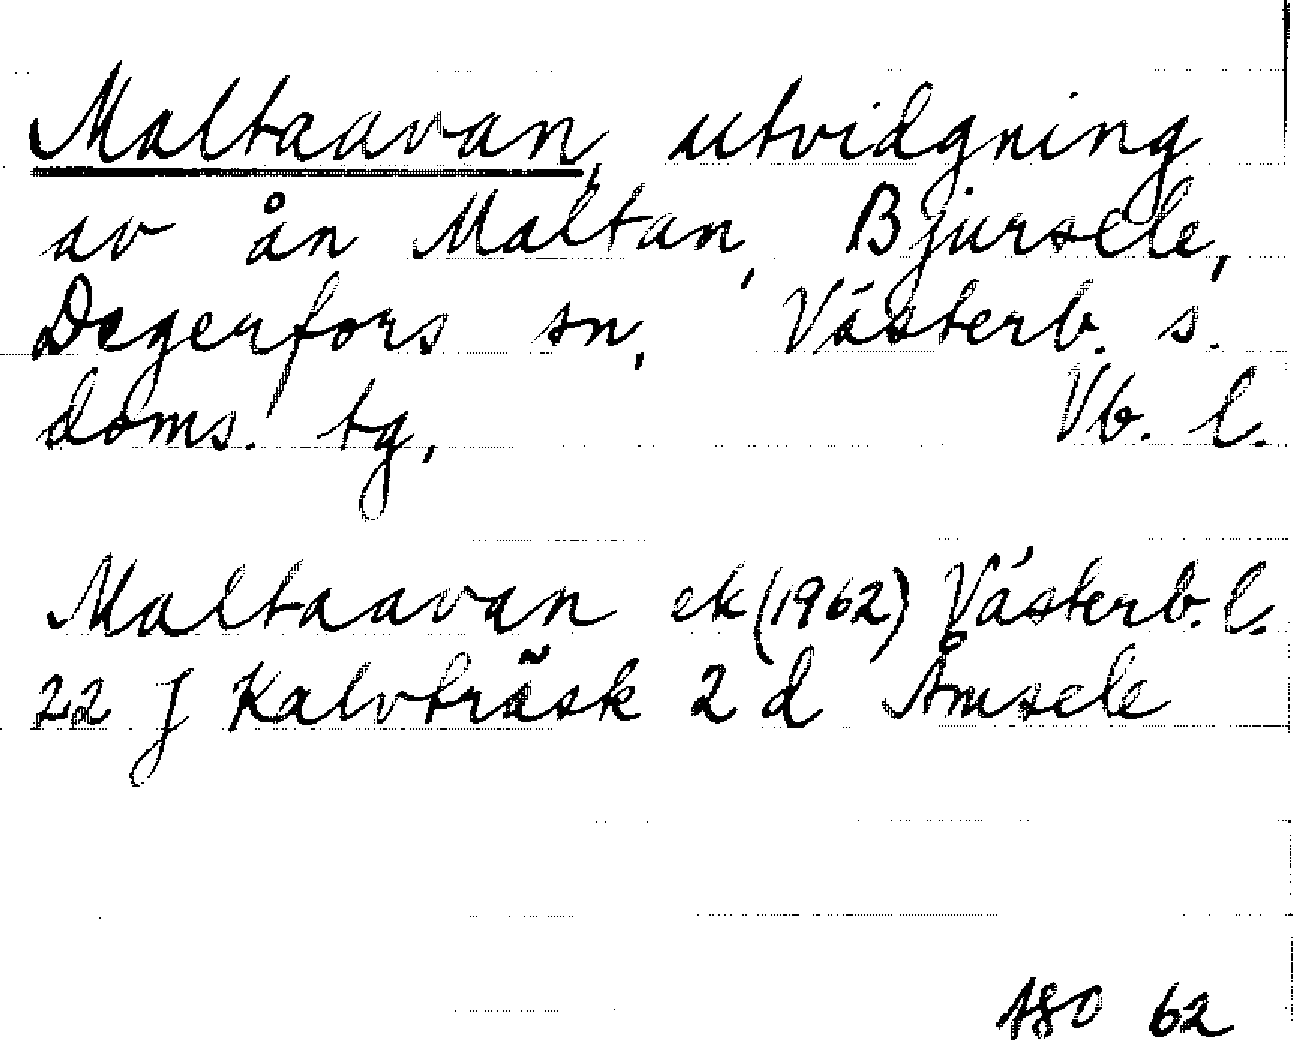 Maltaavan, utvidgning
av ån Maltan, Bjursele,
Degerfors sn, Västerb. s.
doms. tg, Vb. l.
Maltaavan ek (1962) Västerb. l.
22 J Kalvträsk 2 d Åmsele
62